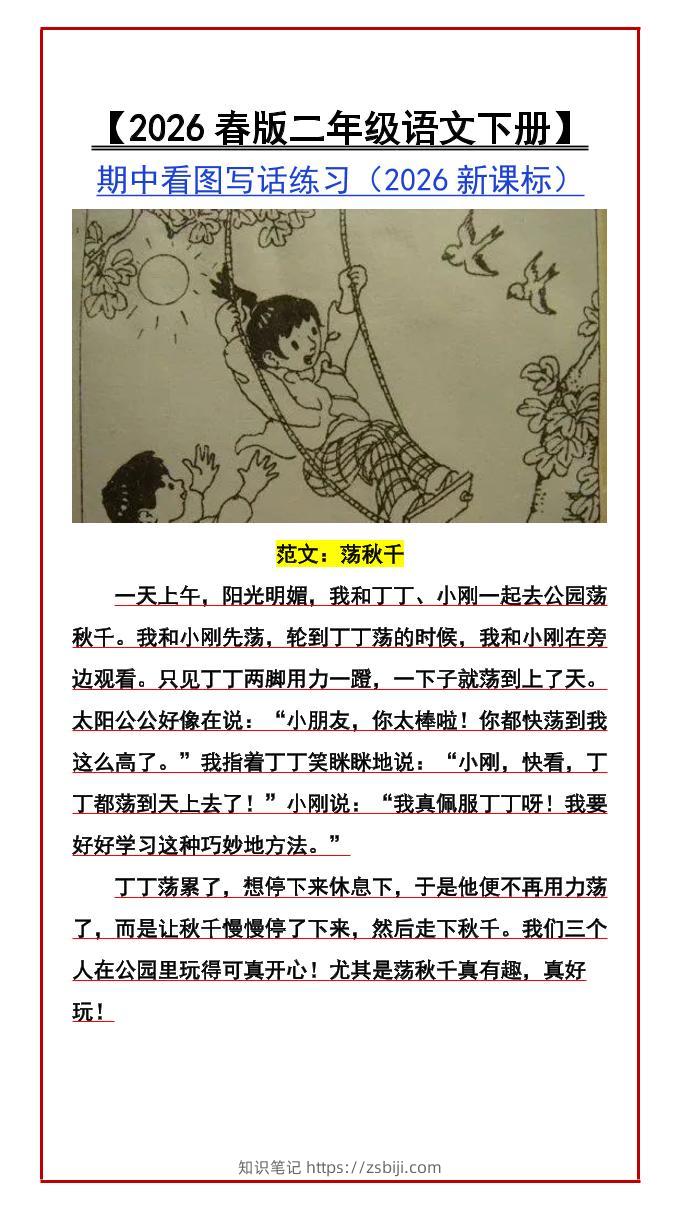 【2026 春版二年级语文下册】
期中看图写话练习（2026 新课标）
范文：荡秋千
一天上午，阳光明媚，我和丁丁、小刚一起去公园荡
秋千。我和小刚先荡，轮到丁丁荡的时候，我和小刚在旁
边观看。只见丁丁两脚用力一蹬，一下子就荡到上了天。
太阳公公好像在说：“小朋友，你太棒啦！你都快荡到我
这么高了。”我指着丁丁笑眯眯地说：“小刚，快看，丁
丁都荡到天上去了！”小刚说：“我真佩服丁丁呀！我要
好好学习这种巧妙地方法。”
丁丁荡累了，想停下来休息下，于是他便不再用力荡
了，而是让秋千慢慢停了下来，然后走下秋千。我们三个
人在公园里玩得可真开心！尤其是荡秋千真有趣，真好
玩！
知识笔记 https://zsbiji.com